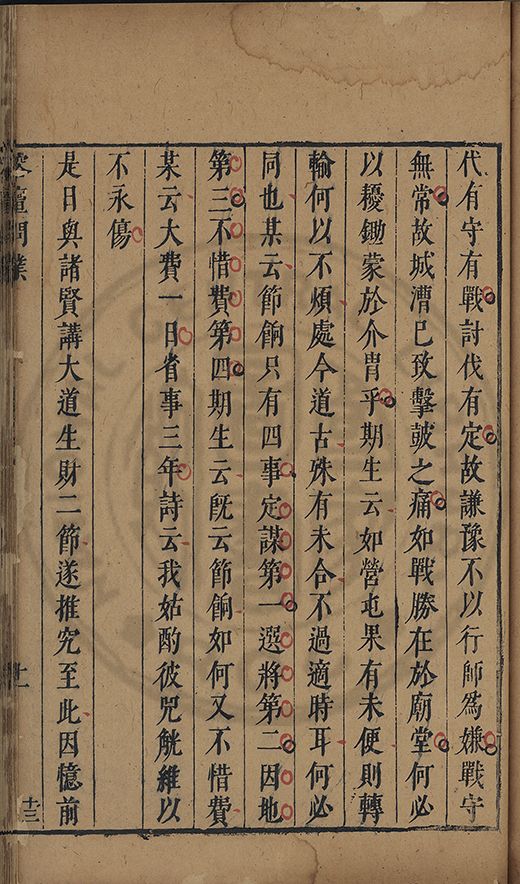 代有守有戰討伐有定故謙豫不以行師爲嫌戰守
無常故城漕已致擊皷之痛如戰勝在於廟堂何必
以耰鋤蒙於介胄乎期生云如營屯果有未便則轉
輸何以不煩處今道古殊有未合不過適時耳何必
同也某云節餉只有四事定謀第一選將第二因地
第三不惜費第四期生云旣云節餉如何又不惜費
某云大費一日省事三年詩云我姑酌彼兕觥維以
不永傷
是日與諸賢講大道生財二節遂推究至此因憶前
十三